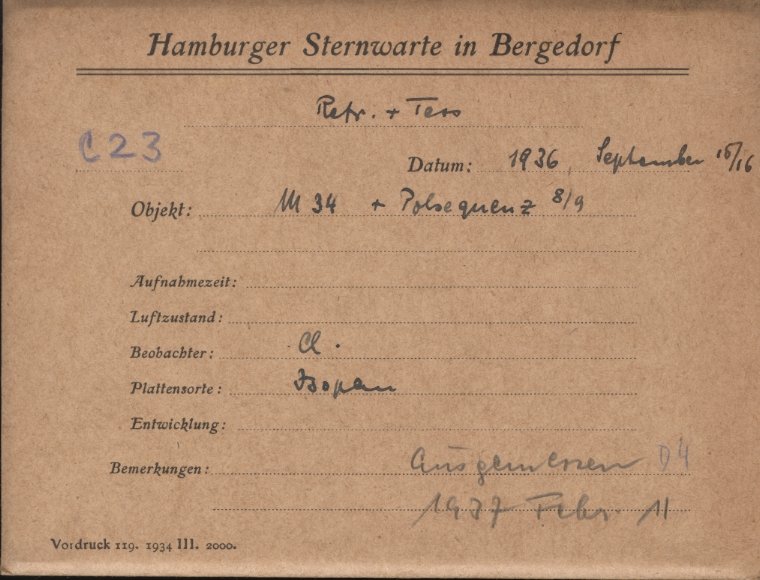 Hamburger Sternwarte in Bergedorf
Refr. + Tess
C 23
Datum: 1936 September 15/16
Objekt: M 34 + Polsequenz 8/9
Aufnahmezeit:
Luftzustand:
Beobachter: Cl.
Plattensorte: Isopan
Entwicklung:
Bemerkungen: Ausgemessen D4
1937 Febr. 11
Vordruck 119. 1934 III. 2000.